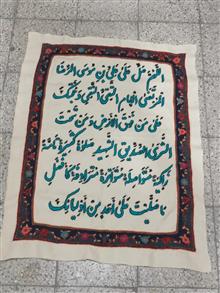 اللهم صل علی علی بن موسی الرضا
المرتضی الامام التقی النقی و حجتک
علی من فوق الارض و من تحت
الثری الصدیق الشهید صلاة کثیرة تامة
زاکیة متواصلة متواترة مترادفة کافضل
ما صلیت علی احد من اولیائک